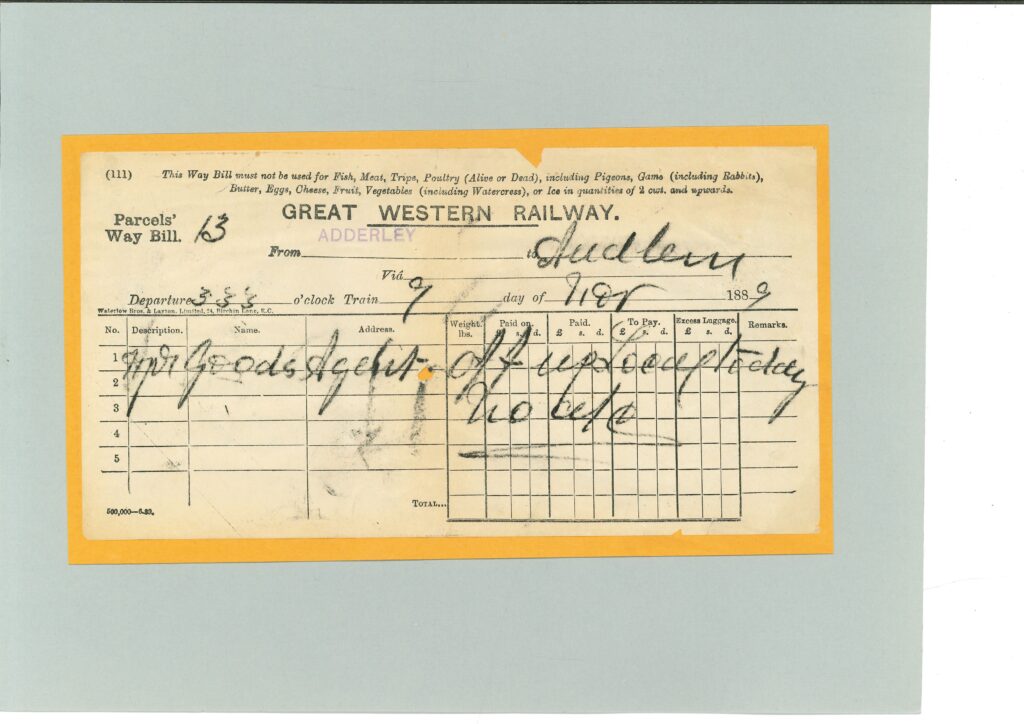 (111) This Way Bill must not be used for Fish, Meat, Tripe, Poultry (Alive or Dead), including Pigeons, Game (including Rabbits),
Butter, Eggs, Cheese, Fruit, Vegetables (including Watercress), or Ice in quantities of 2 cwt. and upwards.
GREAT WESTERN RAILWAY.
Parcels'
Way Bill. 13
ADDERLEY
From to Audlem
Viâ
Departure 333 o'clock Train 9 day of Nov 1889
Waterlow Bros. & Layton, Limited, 24, Birchin Lane, E.C.
No. Description. Name. Address. Weight. lbs. Paid on. £ s. d. Paid. £ s. d. To Pay. £ s. d. Excess Luggage. £ s. d. Remarks.
1 Goods Agent. off up today
2
3 no
4
5
TOTAL...
500,000—6-89.